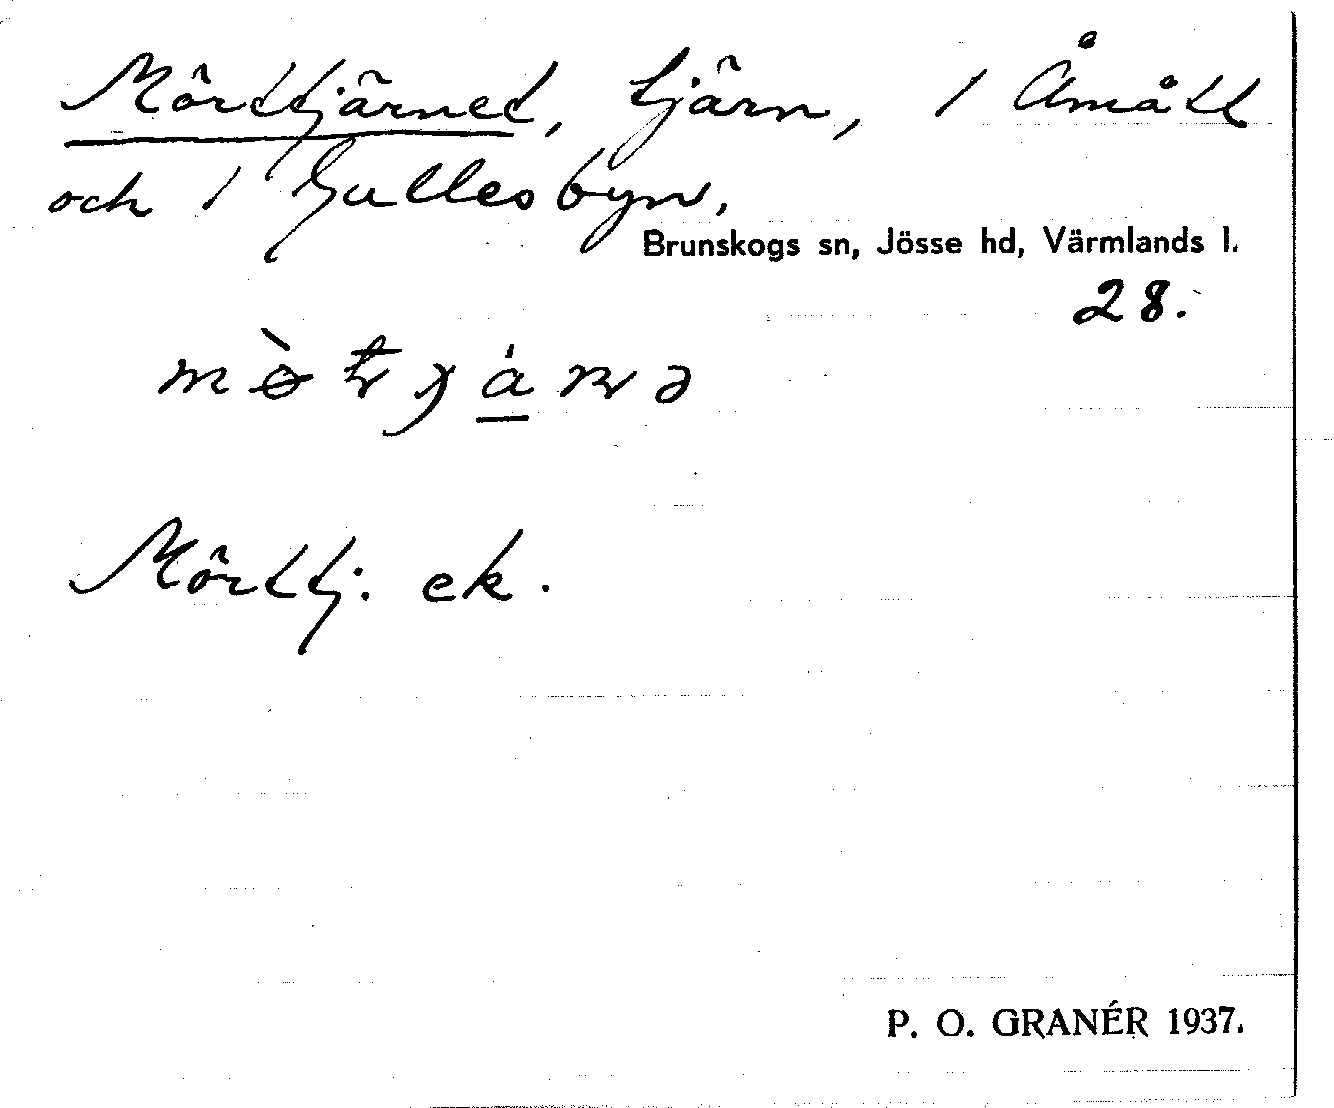 Mörttjärnet, tjärn, 1 Åmått
och 1 Gullesbyn,
Brunskogs sn, Jösse hd, Värmlands l.
28.
Mörttj. ek.
P. O. GRANÉR 1937.